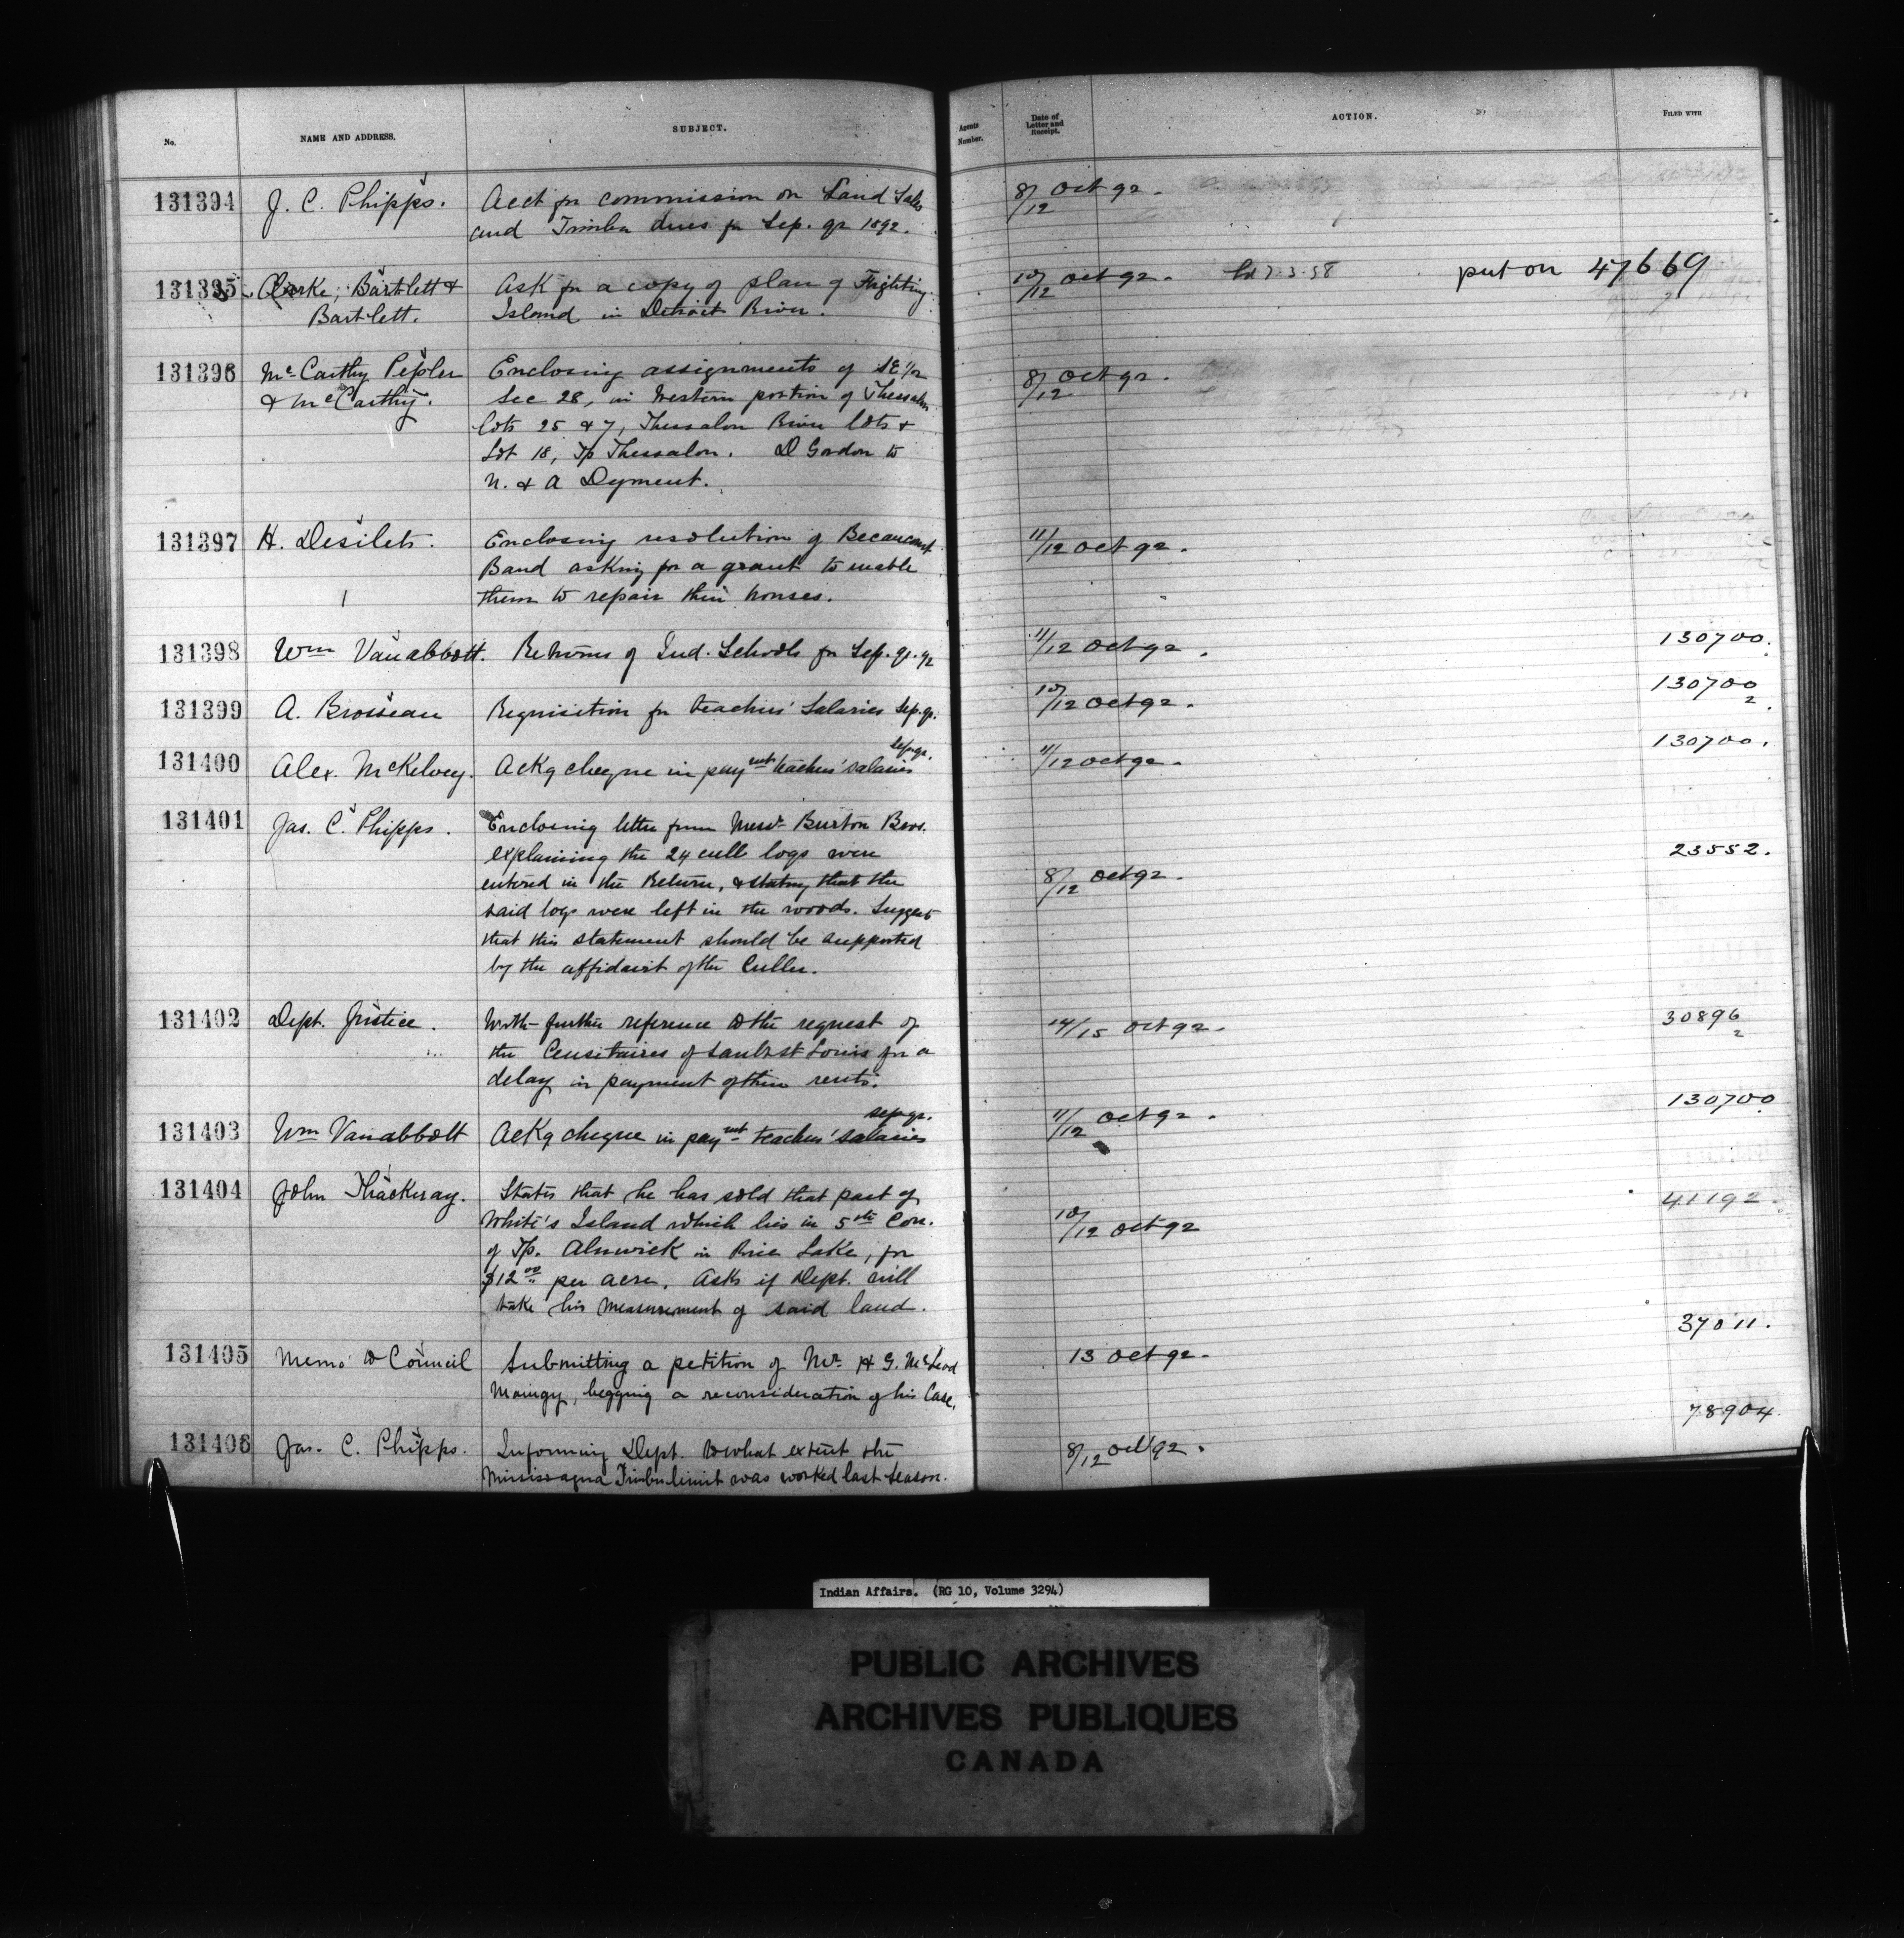 No. NAME AND ADDRESS. SUBJECT. Agents Number. Date of Letter and Receipt. ACTION. FILED WITH
131394 J. C. Phipps. Acct for commission on Land Sales 8/12 Oct 92.
and Timber dues for Sep. qr 1892.
131395 Clarke, Bartlett & Ask for a copy of plan of Fighting 10/12 Oct 92. 7.3.58 put on 47669
Bartlett. Island in Detroit River.
131396 McCarthy Pepler Enclosing assignments of SE 1/2 8/12 Oct 92.
& McCarthy. Sec 28, in Western portion of Thessalon
lots 25 & 7, Thessalon River lots &
Lot 18, Tp Thessalon. D Gordon to
N. & A Dyment.
131397 H. Desilets. Enclosing resolution of Becancour 11/12 Oct 92.
Band asking for a grant to enable
them to repair their houses.
131398 Wm Vanabbott. Returns of Ind. Schools for Sep. qr. 92 11/12 Oct 92. 130700.
131399 A. Brosseau Requisition for teachers' Salaries Sep. qr. 10/12 Oct 92. 130700 2.
131400 Alex. McKelvey. Ackg cheque in payent teachers' salaries Sep. qr. 11/12 Oct 92. 130700.
131401 Jas. C. Phipps. Enclosing letter from Messrs Burton Bros.
explaining the 24 cull logs were 23552.
entered in the Return, & stating that the 8/12 Oct 92.
said logs were left in the woods. Suggest
that this statement should be supported
by the affidavit of the Culler.
131402 Dept. Justice. With further reference to the request of 14/15 Oct 92. 30896 2
the Censitaires of Sault St Louis for a
delay in payment of their rents.
131403 Wm Vanabbott Ackg cheque in payent teachers' salaries Sep. qr. 11/12 Oct 92. 130700
131404 John Thackeray. States that he has sold that part of 41192.
White's Island which lies in 5th Con. 10/12 Oct 92
of Tp. Alnwick in Rice Lake, for
$12.00 per acre. Asks if Dept. will
take his measurement of said land.
131405 Memo to Council Submitting a petition of Mr. H G. McLeod 13 Oct 92. 37011.
Maingy, begging a reconsideration of his Case.
131406 Jas. C. Phipps. Informing Dept. to what extent the 8/12 Oct 92. 78904.
Mississagua Timber limit was worked last season.
Indian Affairs. (RG 10, Volume 3294)
PUBLIC ARCHIVES
ARCHIVES PUBLIQUES
CANADA